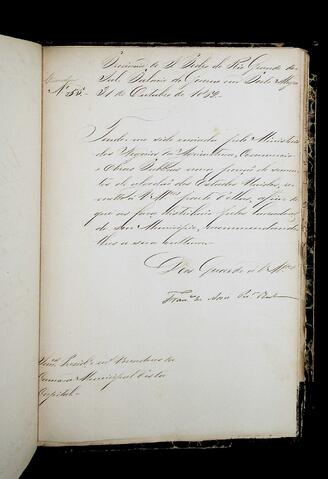 Provincia de S. Pedro do Rio Grande do
Sul. Palacio do Governo em Porto Alegre
31 de Outubro de
Nº 55
Tendo-me sido enviada pelo Ministerio
dos Negocios da Agricultura, Commercio
e Obras Publicas uma porção de semen-
tes de algodão dos Estados Unidos, re-
metto a V. Mces. parte d'ellas, afim de
que as faça distribuir pelos lavradores
de seu Municipio, recommendando-
lhes a sua cultura.
Deos Guarde a V. Mces.
Franco. de Assis Pera.
Snrs. Preside. e Vereadores da
Camara Municipal desta
Capital